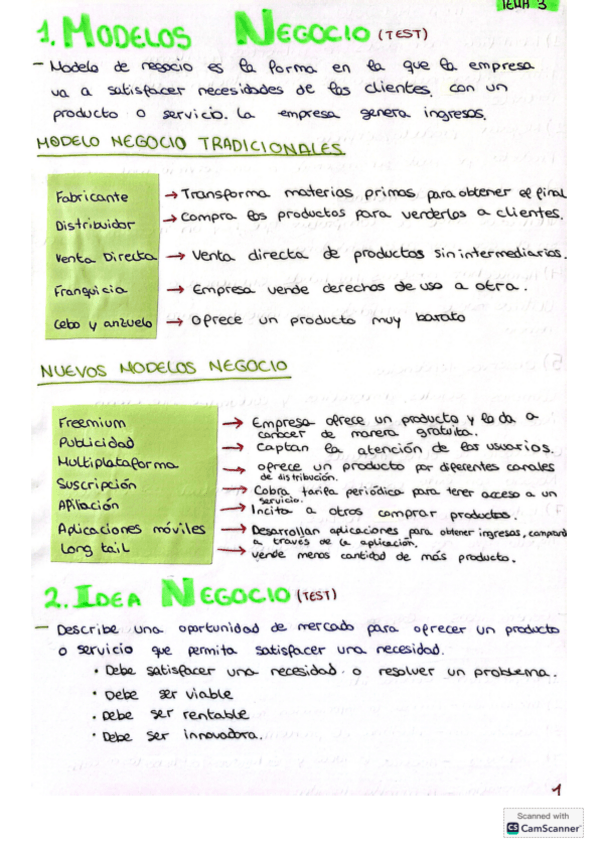 TEMA 3
1. MODELOS NEGOCIO (TEST)
- Modelo de negocio es la forma en la que la empresa
va a satisfacer necesidades de los clientes, con un
producto o servicio. La empresa genera ingresos.
MODELO NEGOCIO TRADICIONALES
Fabricante → Transforma materias primas para obtener el final
Distribuidor → Compra los productos para venderlos a clientes.
Venta Directa → Venta directa de productos sin intermediarios.
Franquicia → Empresa vende derechos de uso a otra.
Cebo y anzuelo → Ofrece un producto muy barato
NUEVOS MODELOS NEGOCIO
Freemium → Empresa ofrece un producto y lo da a
conocer de manera gratuita.
Publicidad → Captan la atención de los usuarios.
Multiplataforma → ofrece un producto por diferentes canales
de distribución.
Suscripción → Cobra tarifa periódica para tener acceso a un
servicio.
Afiliación → Incita a otros comprar productos.
Aplicaciones móviles → Desarrollan aplicaciones para obtener ingresos, comprand
a través de la aplicación.
Long tail → vende menos cantidad de más producto.
2. IDEA NEGOCIO (TEST)
- Describe una oportunidad de mercado para ofrecer un producto
o servicio que permita satisfacer una necesidad.
• Debe satisfacer una necesidad o resolver un problema.
• Debe ser viable
• Debe ser rentable
• Debe ser innovadora.
1
Scanned with
CS CamScanner